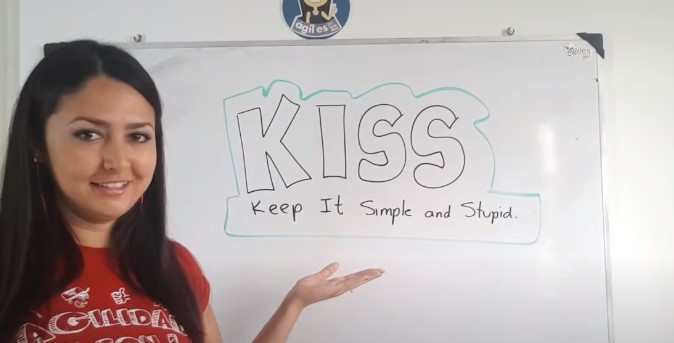 agiles
KISS
Keep It Simple and Stupid.
AGILIDAD